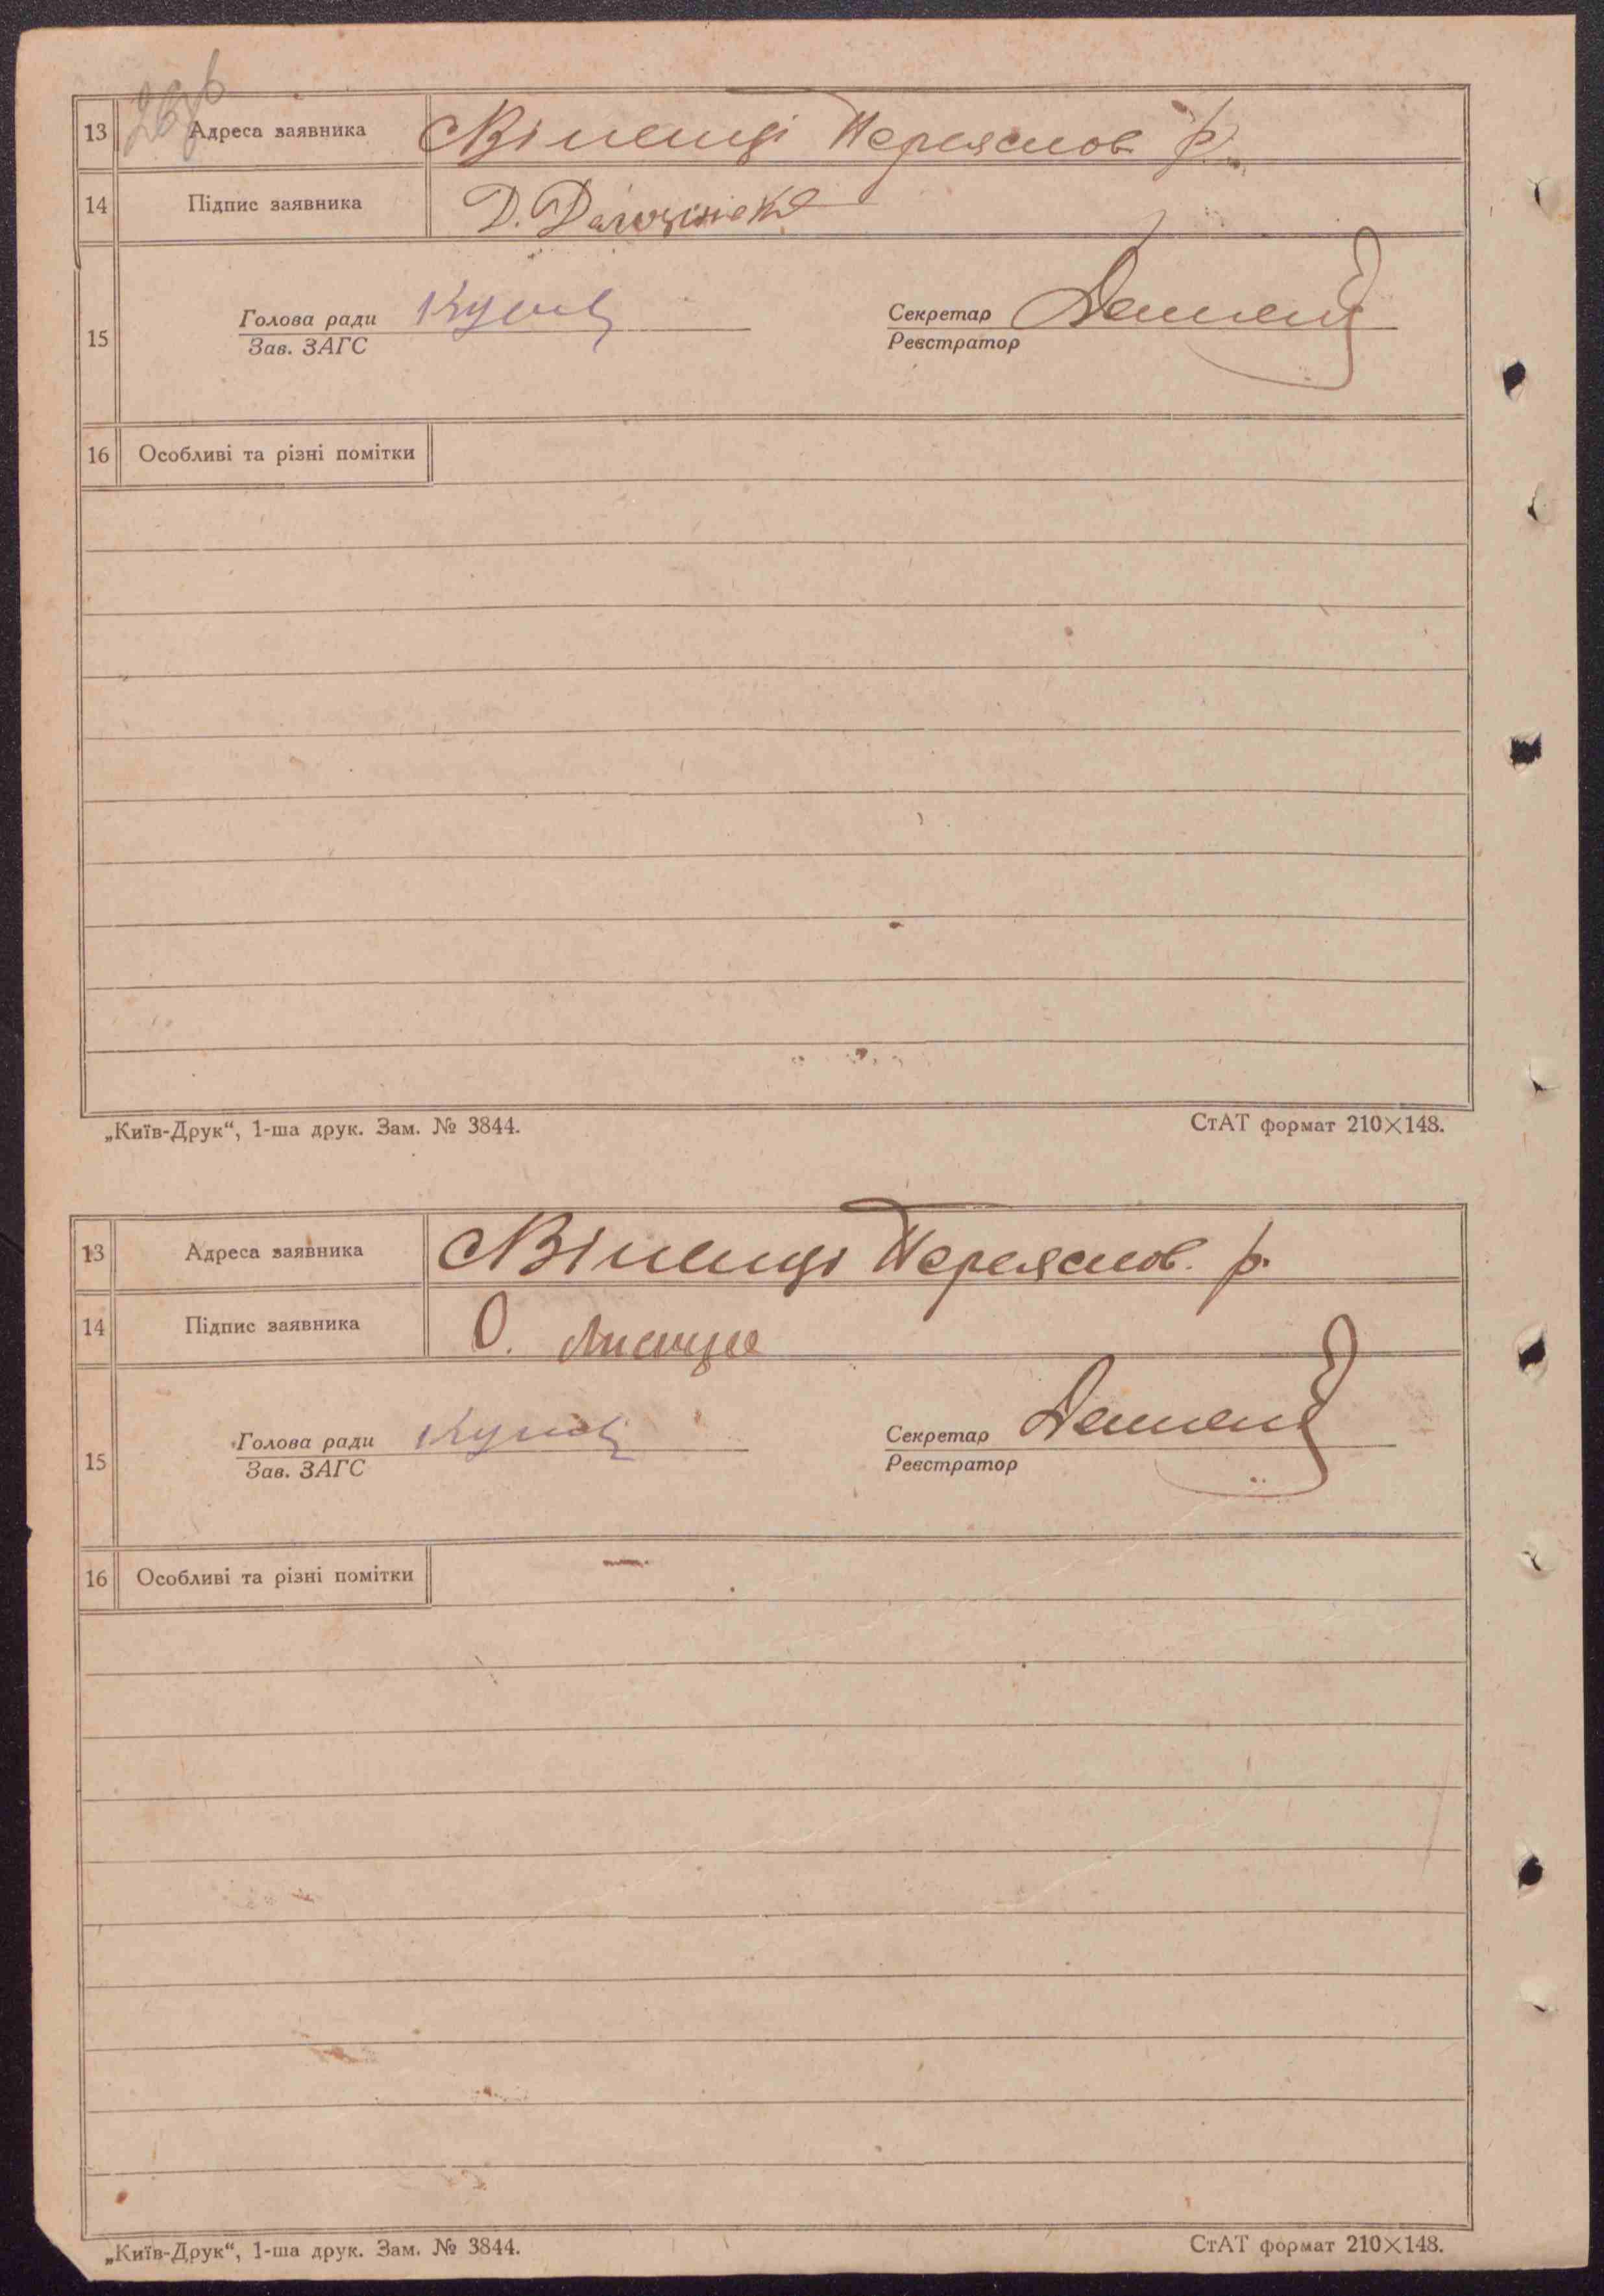 13 Адреса заявника с Віненці Переяслов р.
14 Підпис заявника Д.
15 Голова ради Секретар
Зав. ЗАГС Реєстратор
16 Особливі та різні помітки
„Київ-Друк“, 1-ша друк. Зам. № 3844. СтАТ формат 210×148.
13 Адреса заявника с Віненці Переяслов. р.
14 Підпис заявника О.
15 Голова ради Секретар
Зав. ЗАГС Реєстратор
16 Особливі та різні помітки
„Київ-Друк“, 1-ша друк. Зам. № 3844. СтАТ формат 210×148.